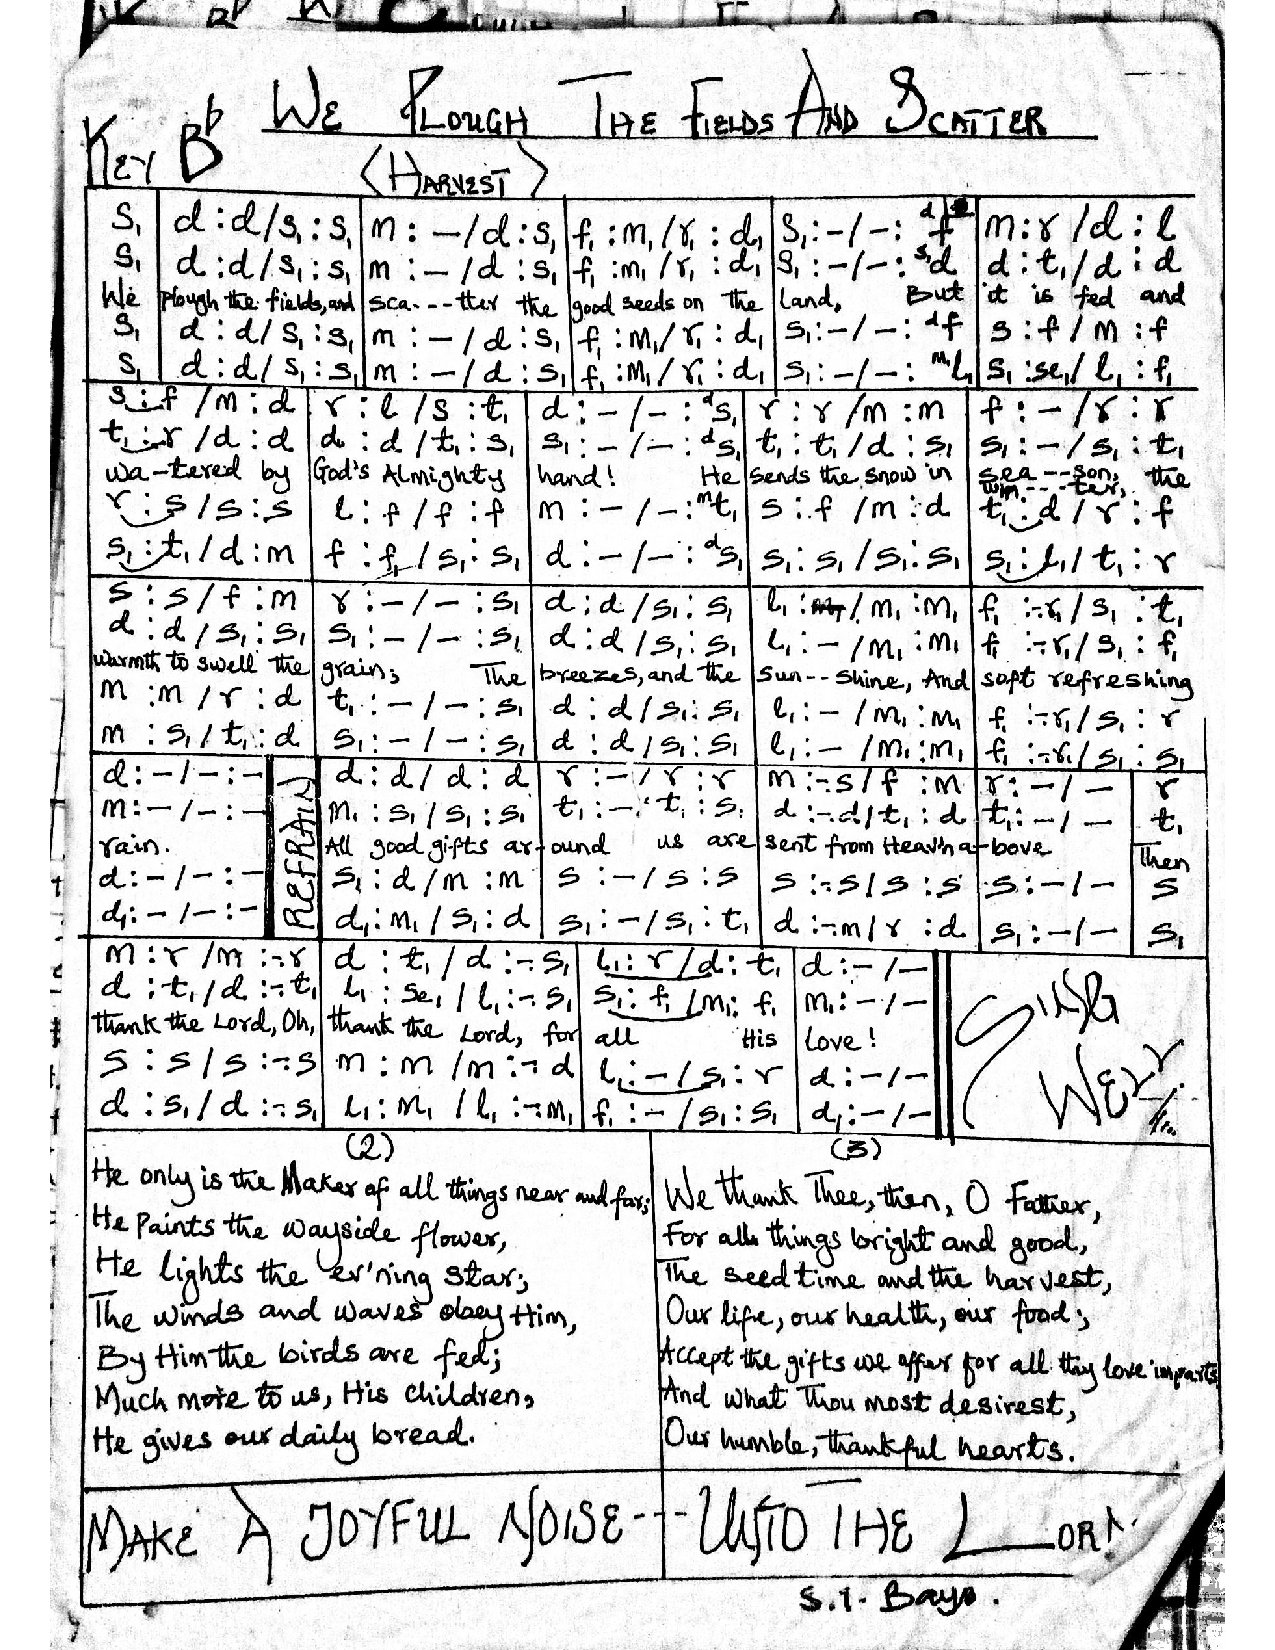 WE PLOUGH THE FIELDS AND SCATTER
KEY B♭
<HARVEST>
S₁ | d :d/s₁:s₁ | m :–/d :s₁ | f₁ :m₁/r₁ :d₁ | S₁:–/–: ᵈf | m:r /d :l
S₁ | d :d/s₁ :s₁ | m :–/d :s₁ | f₁ :m₁ /r₁ :d₁ | S₁ :–/–: ˢ¹d | d :t₁/d :d
We | plough the fields, and | sca---tter the | good seeds on the | land, But | it is fed and
S₁ | d :d/s₁ :s₁ | m :–/d :s₁ | f₁ :m₁/r₁ :d₁ | s₁ :–/–: ᵈf | s :f /m :f
S₁ | d :d/s₁ :s₁ | m :–/d :s₁ | f₁ :m₁/r₁ :d₁ | s₁ :–/–: ᵐl₁ | s₁ :se₁/l₁ :f₁
s :f /m :d | r :l /s :t₁ | d :–/–: ᵈs₁ | r :r /m :m | f :–/r :r
t₁ :r /d :d | d :d /t₁ :s₁ | s₁ :–/–: ᵈs₁ | t₁ :t₁/d :s₁ | s₁ :–/s₁ :t₁
wa-tered by | God's Almighty | hand! He | sends the snow in | sea--son, the
win---ter,
r :s /s :s | l :f /f :f | m :–/–: ᵐt₁ | s :f /m :d | t₁ :d /r :f
s₁ :t₁/d :m | f :f₁/s₁ :s₁ | d :–/–: ᵈs₁ | s₁ :s₁ /s₁ :s₁ | s₁ :l₁/t₁ :r
s :s /f :m | r :–/–:s₁ | d :d /s₁ :s₁ | l₁ :/m₁ :m₁ | f₁ :-r₁/s₁ :t₁
d :d /s₁ :s₁ | s₁ :–/–:s₁ | d :d /s₁ :s₁ | l₁ :–/m₁ :m₁ | f₁ :-r₁/s₁ :f₁
warmth to swell the | grain; The | breezes, and the | sun--shine, And | soft refreshing
m :m /r :d | t₁ :–/–:s₁ | d :d /s₁ :s₁ | l₁ :–/m₁ :m₁ | f₁ :-r₁/s₁ :r
m :s₁/t₁ :d | s₁ :–/–:s₁ | d :d /s₁ :s₁ | l₁ :–/m₁ :m₁ | f₁ :-r₁/s₁ :s₁
REFRAIN
d :–/–:– | d :d/d :d | r :–/r :r | m :-s/f :m | r :–/– | r
m :–/–:– | m₁ :s₁/s₁ :s₁ | t₁ :–/t₁ :s₁ | d :-d/t₁ :d | t₁ :–/– | t₁
rain. | All good gifts ar- | ound us are | sent from Heav'n a- | bove | Then
d :–/–:– | s₁ :d/m :m | s :–/s :s | s :-s/s :s | s :–/– | s
d₁ :–/–:– | d₁ :m₁/s₁ :d | s₁ :–/s₁ :t₁ | d :-m/r :d | s₁ :–/– | s₁
m :r /m :-r | d :t₁/d :-s₁ | l₁ :r /d :t₁ | d :–/–
d :t₁/d :-t₁ | l₁ :se₁/l₁ :-s₁ | s₁ :f₁/m₁ :f₁ | m₁ :–/–
thank the Lord, Oh, | thank the Lord, for | all His | love!
s :s /s :-s | m :m /m :-d | l₁ :–/s₁ :r | d :–/–
d :s₁/d :-s₁ | l₁ :m₁ /l₁ :-m₁ | f₁ :–/s₁ :s₁ | d₁ :–/–
SING
WELL
(2)
He only is the Maker of all things near and far;
He paints the wayside flower,
He lights the ev'ning star;
The winds and waves obey Him,
By Him the birds are fed;
Much more to us, His children,
He gives our daily bread.
(3)
We thank Thee, then, O Father,
For all things bright and good,
The seed time and the harvest,
Our life, our health, our food;
Accept the gifts we offer for all thy love imparts
And what Thou most desirest,
Our humble, thankful hearts.
MAKE A JOYFUL NOISE---UNTO THE LORD
S.Y. Bayo.